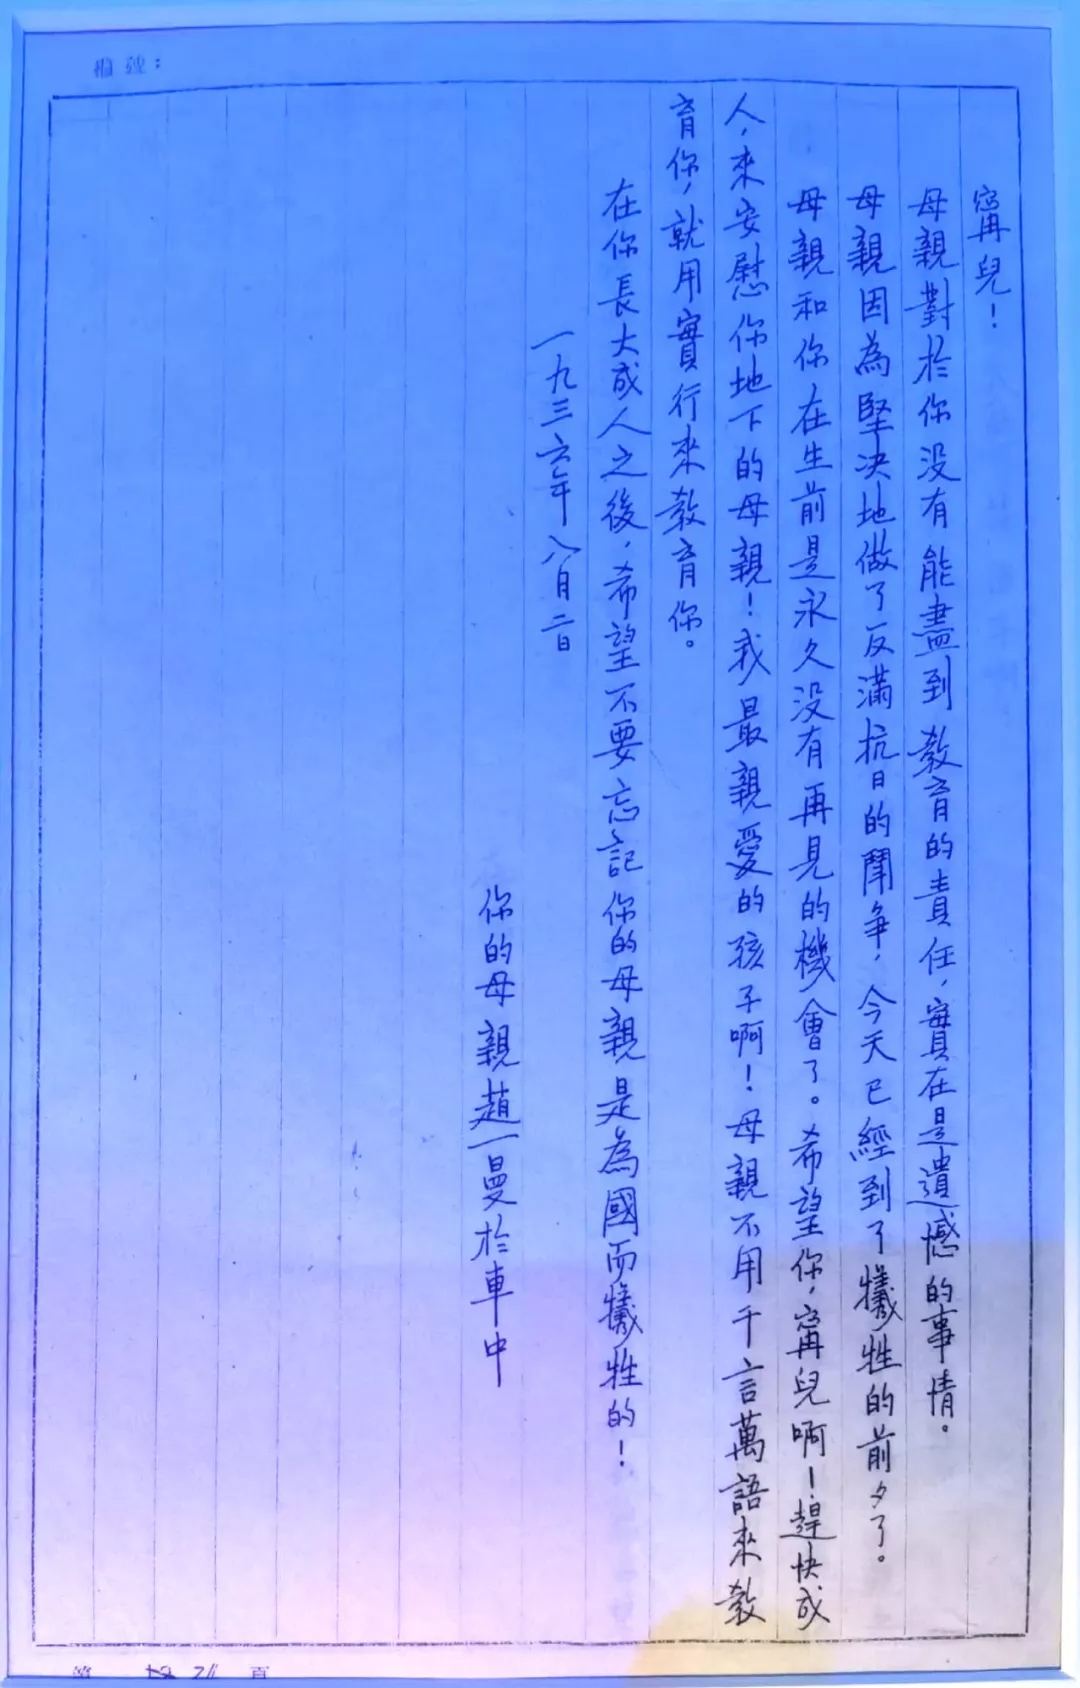 編號：
甯兒！
母親對於你沒有能盡到教育的責任，實在是遺憾的事情。
母親因為堅決地做了反滿抗日的鬥爭，今天已經到了犧牲的前夕了。
母親和你在生前是永久沒有再見的機會了。希望你，甯兒啊！趕快成
人，來安慰你地下的母親！我最親愛的孩子啊！母親不用千言萬語來教
育你，就用實行來教育你。
在你長大成人之後，希望不要忘記你的母親是為國而犧牲的！
一九三六年八月二日
你的母親趙一曼於車中
第 頁